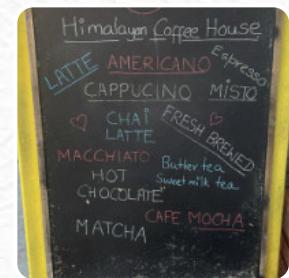 Himalayan Coffee House
Espresso
LATTE
AMERICANO
CAPPUCINO
MISTO
CHAI
LATTE
FRESH BREWED
MACCHIATO
Butter tea
Sweet milk tea
HOT
CHOCOLATE
CAFE MOCHA
MATCHA